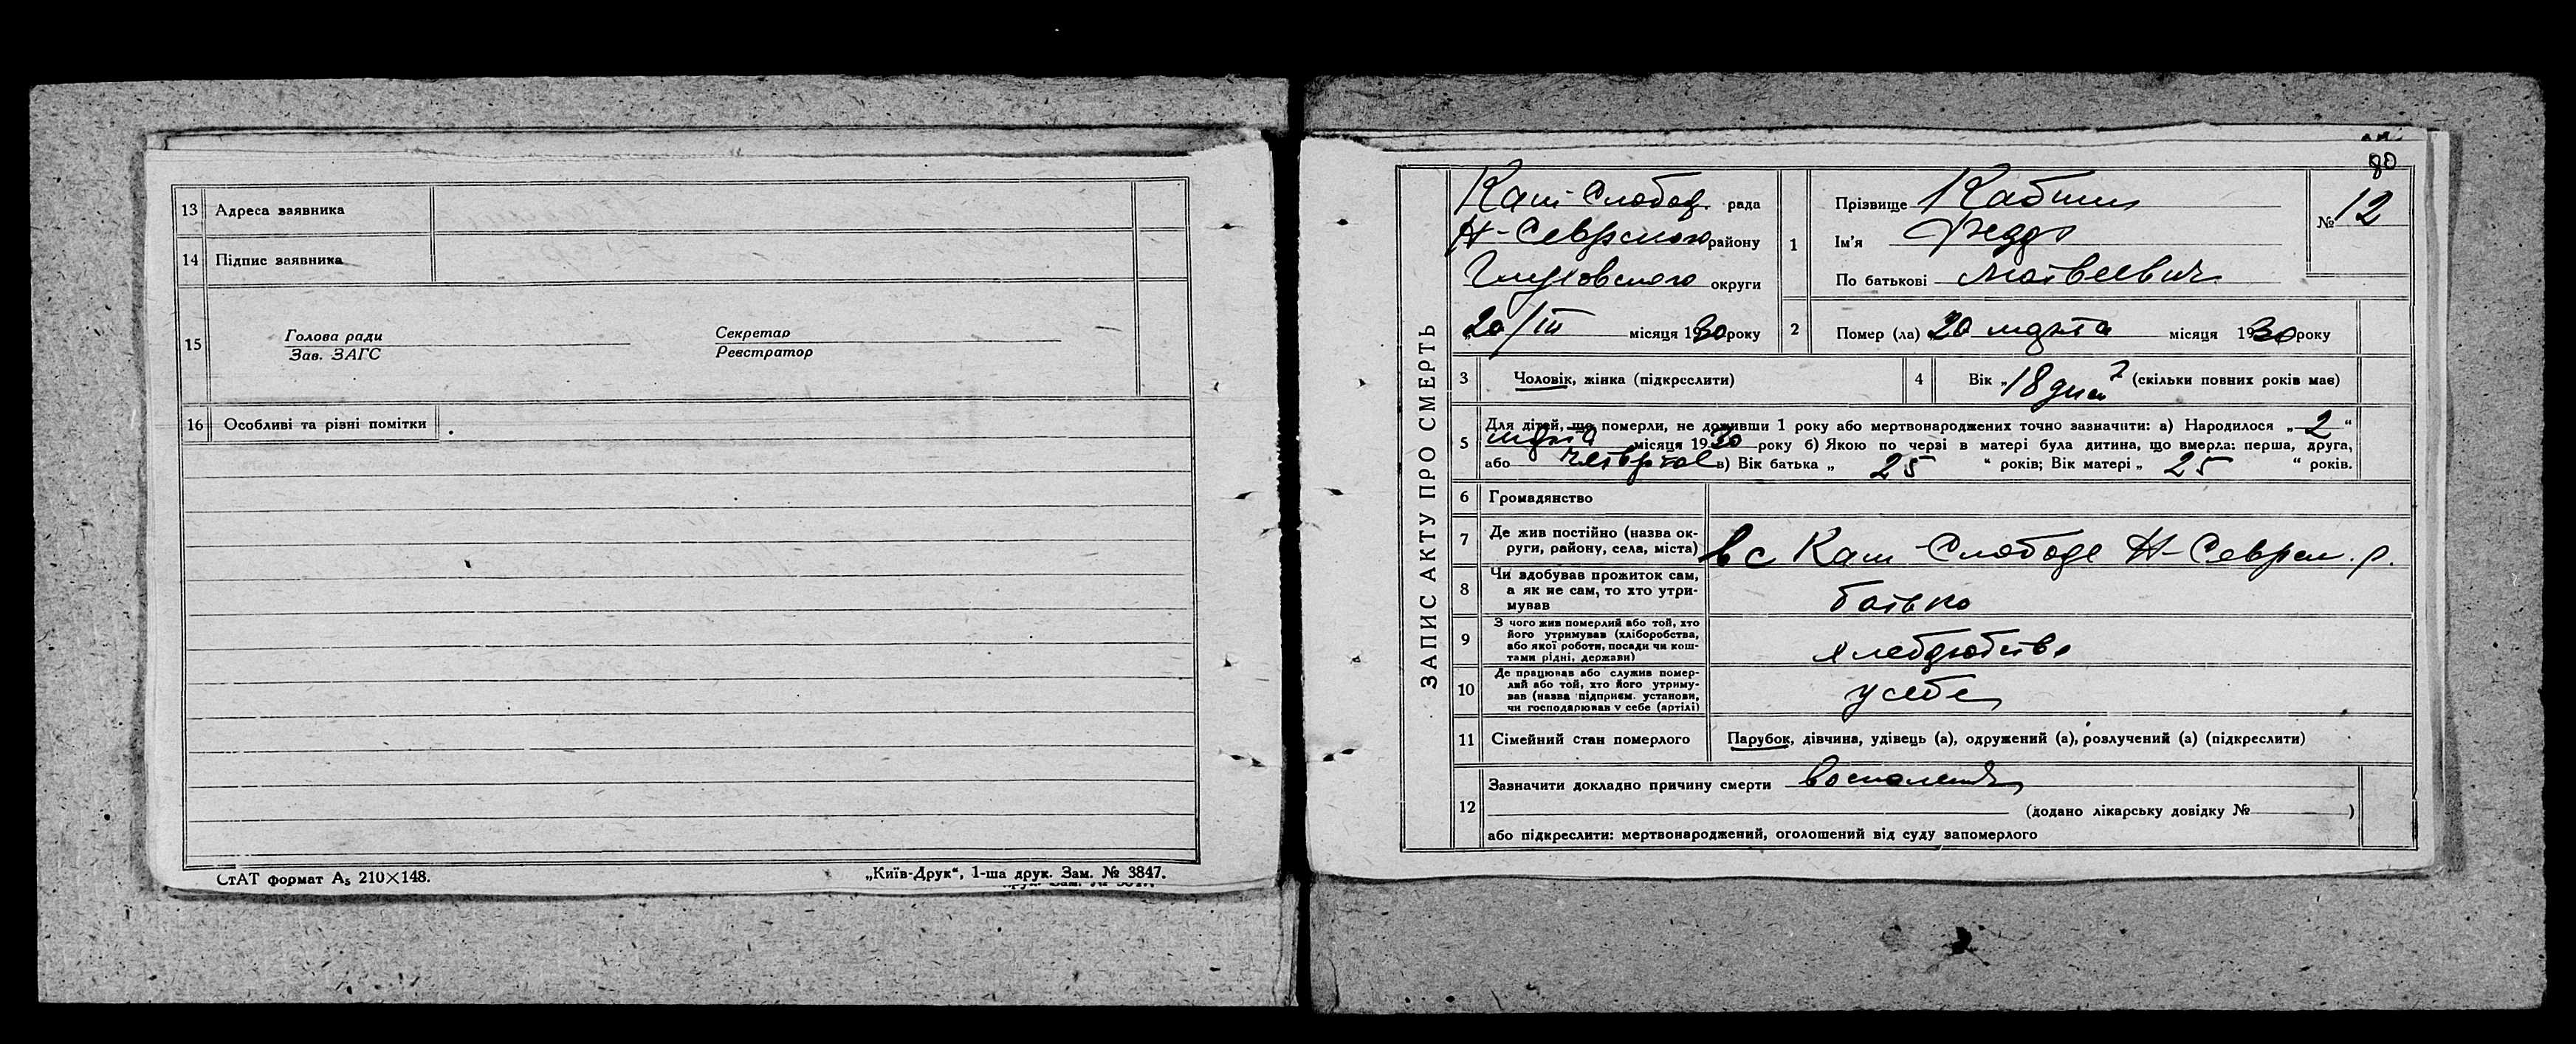 13 Адреса заявника
14 Підпис заявника
15 Голова ради Секретар
Зав. ЗАГС Реєстратор
16 Особливі та різні помітки
СтАТ формат А₅ 210×148. „Київ-Друк“, 1-ша друк. Зам. № 3847.
90
ЗАПИС АКТУ ПРО СМЕРТЬ
Кам-Слобод. рада
Н-Севрского району
Глуховского округи
„20/III місяця 1930 року
1 Прізвище
Ім'я Федор
По батькові Матвеевич
№ 12
2 Помер (ла) 20 марта місяця 1930 року
3 Чоловік, жінка (підкреслити)
4 Вік „18 дней (скільки повних років має)
5 Для дітей, що померли, не доживши 1 року або мертвонароджених точно зазначити: а) Народилося „2“
марта місяця 1930 року б) Якою по черзі в матері була дитина, що вмерла: перша, друга,
або четвертое в) Вік батька „ 25 “ років; Вік матері „ 25 “ років.
6 Громадянство
7 Де жив постійно (назва ок-
руги, району, села, міста) в с Кам-Слободе Н-Севрск. р.
8 Чи здобував прожиток сам,
а як не сам, то хто утри-
мував батько
9 З чого жив померлий або той, хто
його утримував (хліборобства,
або якої роботи, посади чи кош-
тами рідні, держави)
10 Де працював або служив помер-
лий або той, хто його утриму-
вав (назва підприєм. установи,
чи господарював у себе (артілі) у себе
11 Сімейний стан померлого Парубок, дівчина, удівець (а), одружений (а), розлучений (а) (підкреслити)
12 Зазначити докладно причину смерти воспаления
(додано лікарську довідку № )
або підкреслити: мертвонароджений, оголошений від суду запомерлого